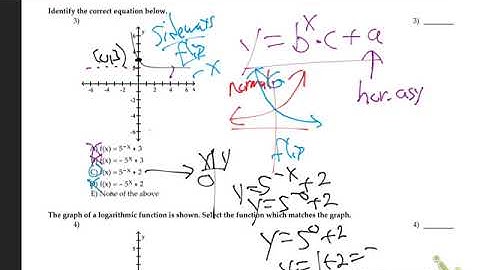 Identify the correct equation below.
3)
3)
sideways
flip
-x
(0,3)
y = b^x · c + a
hor. asy
normal
flip
-6 -4 -2 2 4 6
f(x) = 5^-x + 3
f(x) = -5^x + 3
f(x) = 5^-x + 2
f(x) = -5^x + 2
E) None of the above
x y
0
y = 5^-x + 2
y = 5^-0 + 2
y = 5^0 + 2
y = 1 + 2 =
The graph of a logarithmic function is shown. Select the function which matches the graph.
4)
4)